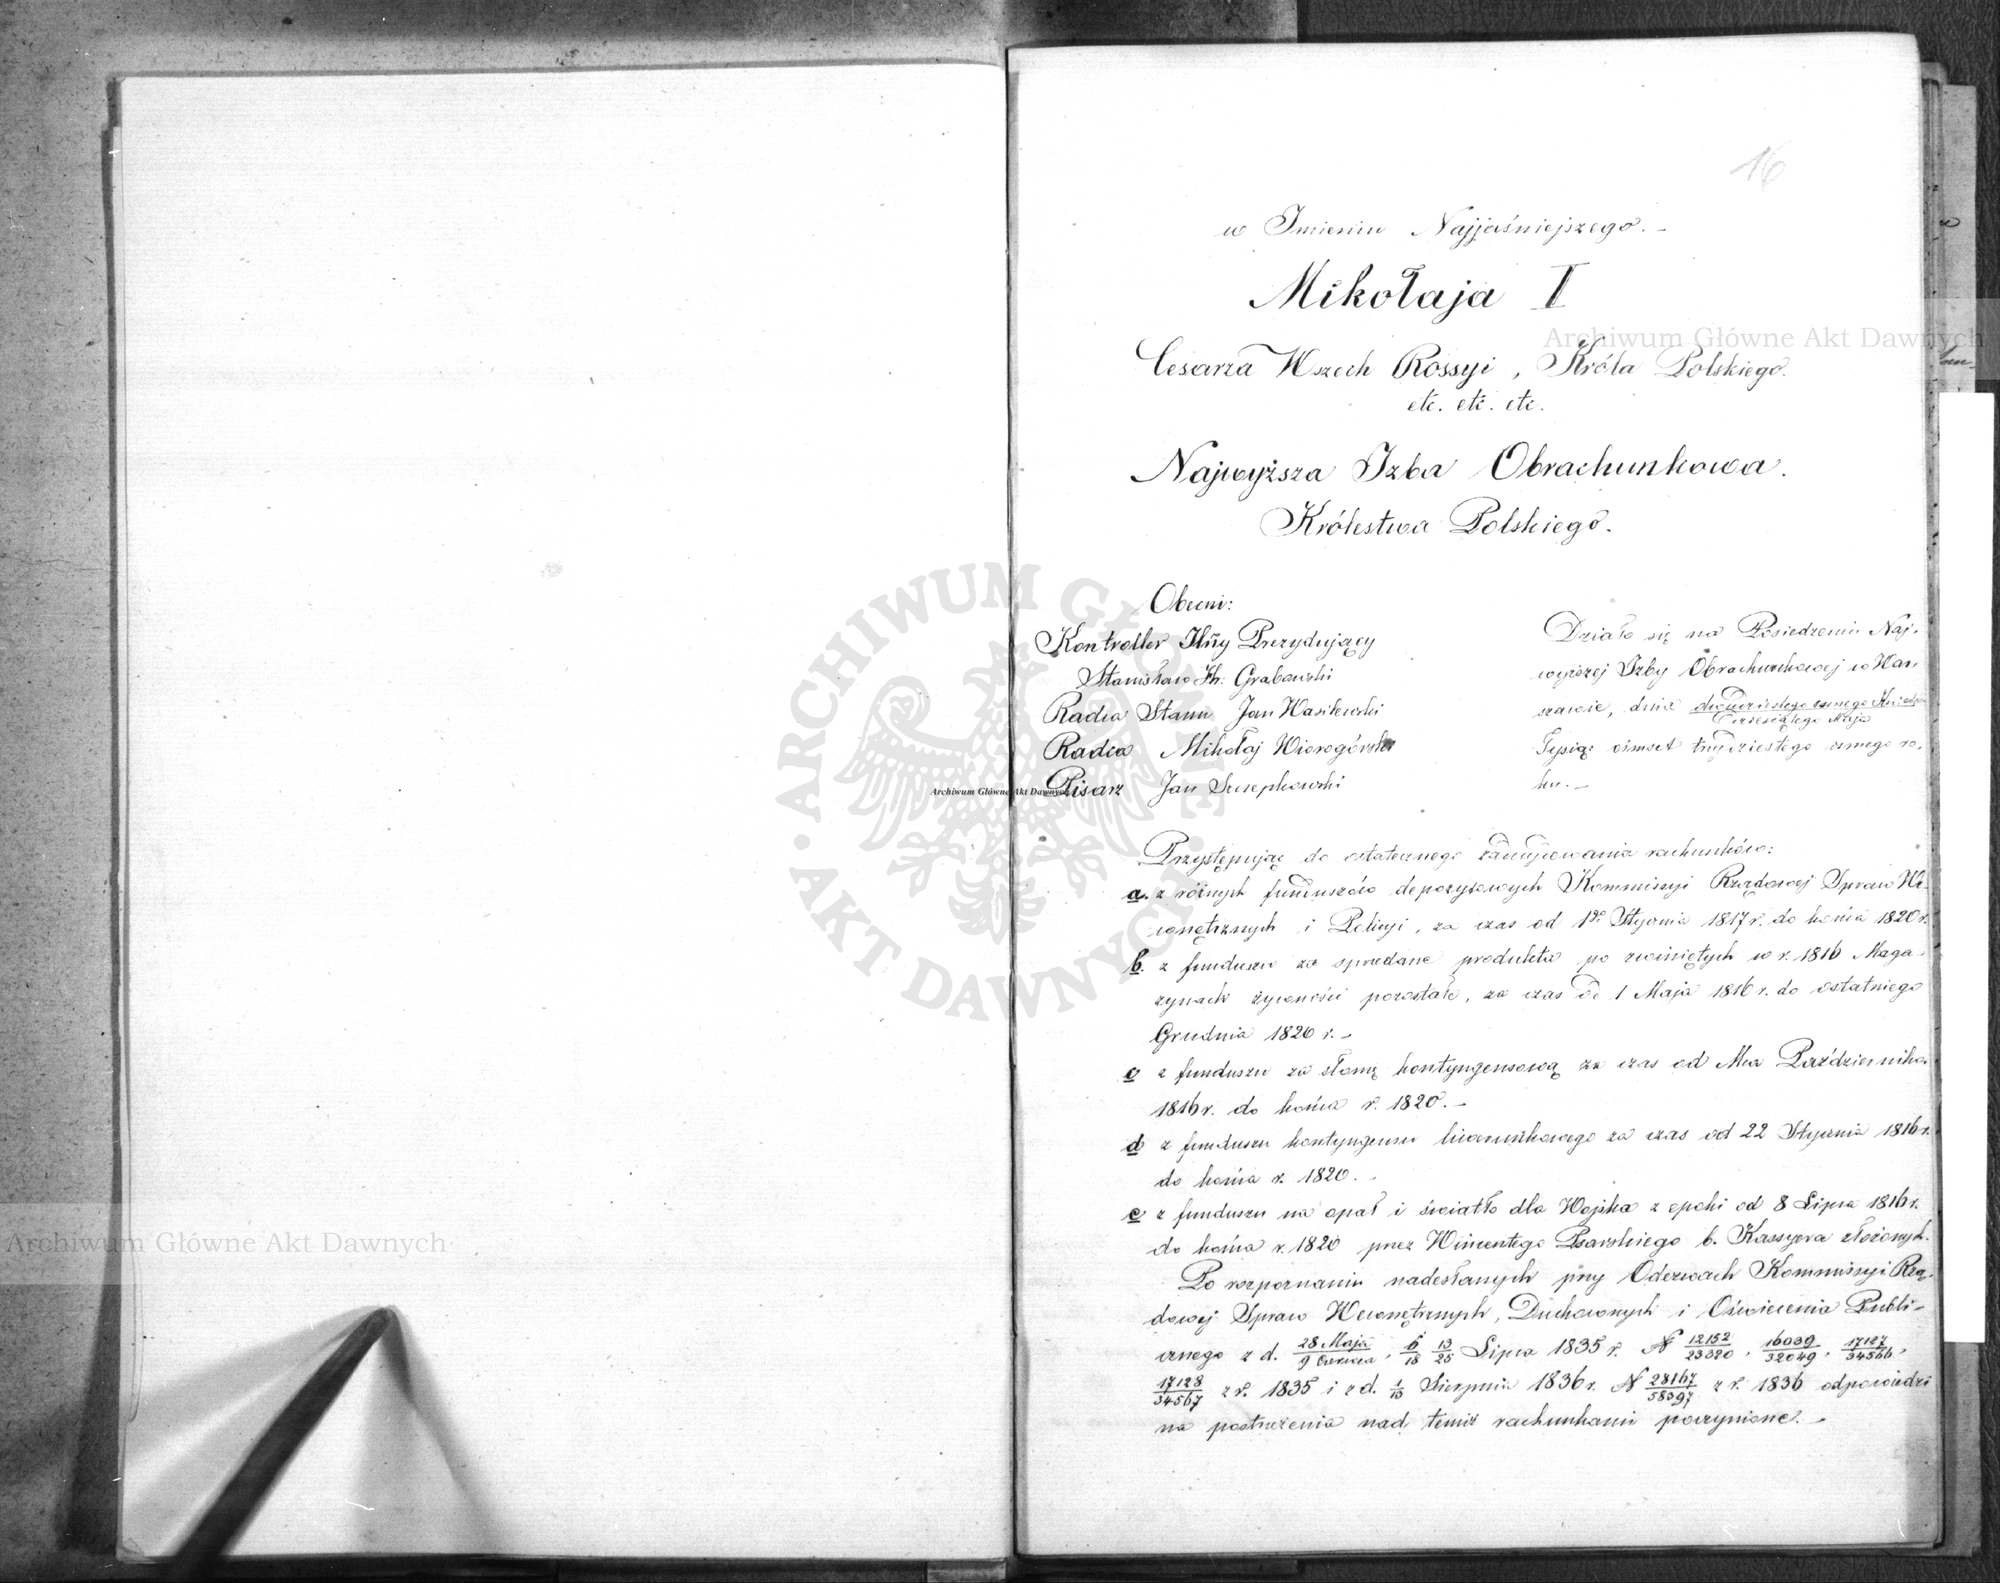 16
w Imieniu Najjaśniejszego. –
Mikołaja I
Cesarza Wszech Rossyi, Króla Polskiego.
etc. etc. etc.
Najwyższa Izba Obrachunkowa.
Królestwa Polskiego.
Obecni:
Kontroller Jlny Prezydujący
Stanisław Hr. Grabowski
Radca Stanu Jan Wasilewski
Radca Mikołaj Wiorogórski
Pisarz Jan Szczepkowski
Działo się na Posiedzeniu Naj-
wyższej Izby Obrachunkowej w War-
szawie, dnia dwudziestego osmego Kwietnia
Dziesiątego Maja
Tysiąc ośmset trzydziestego osmego ro-
ku. –
Przystępując do ostatecznego zadecydowania rachunków:
a. z różnych funduszów depozytowych Kommissyi Rządowej Spraw We-
wnętrznych i Policyi, za czas od 1go Stycznia 1817 r. do końca 1820 r.
b. z funduszu za sprzedane produkta po zwiniętych w r. 1816 Maga-
zynach żywności pozostałe, za czas od 1 Maja 1816 r. do ostatniego
Grudnia 1820 r. –
c z funduszu za słomę kontyngensową za czas od Mca Października
1816 r. do końca r. 1820. –
d z funduszu kontyngensu liwerunkowego za czas od 22 Stycznia 1816 r.
do końca r. 1820. –
e z funduszu na opał i światło dla Wojska z epoki od 8 Lipca 1816 r.
do końca r. 1820 przez Wincentego Psarskiego b. Kassyera złożonych.
Po rozpoznaniu nadesłanych przy Odezwach Kommissyi Rzą-
dowej Spraw Wewnętrznych, Duchownych i Oświecenia Publi-
cznego z d. 28 Maja/9 Czerwca, 6/18 13/25 Lipca 1835 r. N 12152/23320, 16039/32049, 17127/34566,
17128/34567 z r. 1835 i z d. 1/13 Sierpnia 1836 r. N 28167/58397 z r. 1836 odpowiedzi
na postrzeżenia nad temiż rachunkami poczynione. –
Archiwum Główne Akt Dawnych
Archiwum Główne Akt Dawnych
Archiwum Główne Akt Dawnych
ARCHIWUM GŁÓWNE AKT DAWNYCH